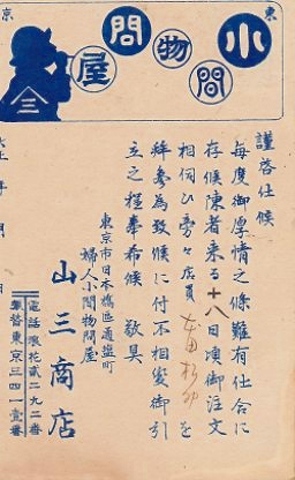 東京
小間物問屋
謹啓仕候
毎度御厚情之條難有仕合に
存候陳者来る十八日頃御注文
相伺ひ旁々店員
を
拜參為致候に付不相變御引
立之程奉希候 敬具
東京市日本橋區通塩町
婦人小間物問屋
山三商店
電話浪花貳二九二番
振替東京三四一壹番
年 月 日